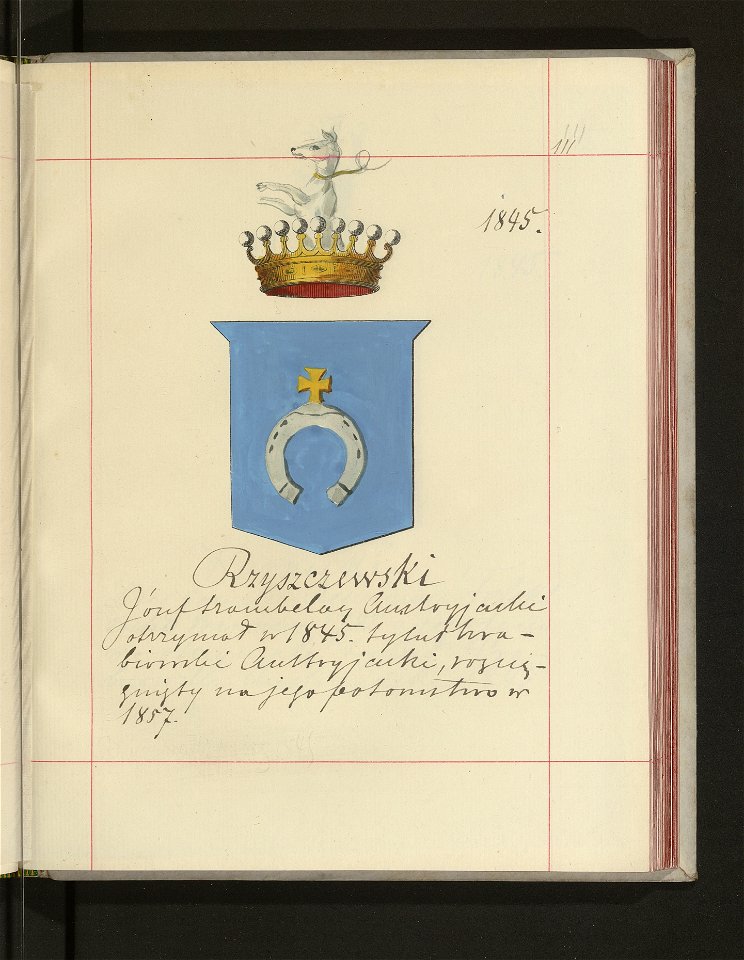 111
1845.
Rzyszczewski
Józef szambelan Austryjacki
otrzymał w 1845. tytuł hra-
biowski Austryjacki, rozcią-
gnięty na jego potomstwo w
1857.